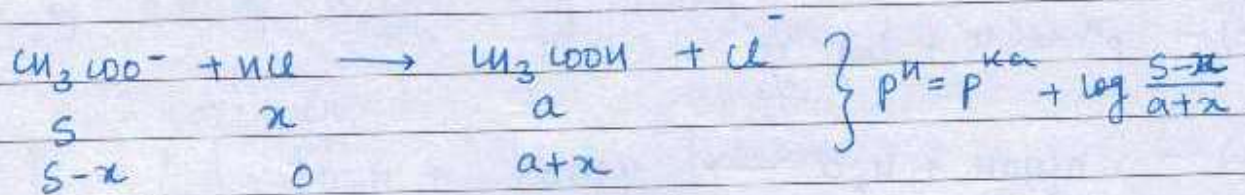 CH₃COO⁻ + HCl ⟶ CH₃COOH + Cl⁻ } pH = pKa + log (s-x)/(a+x)
s x a
s-x 0 a+x